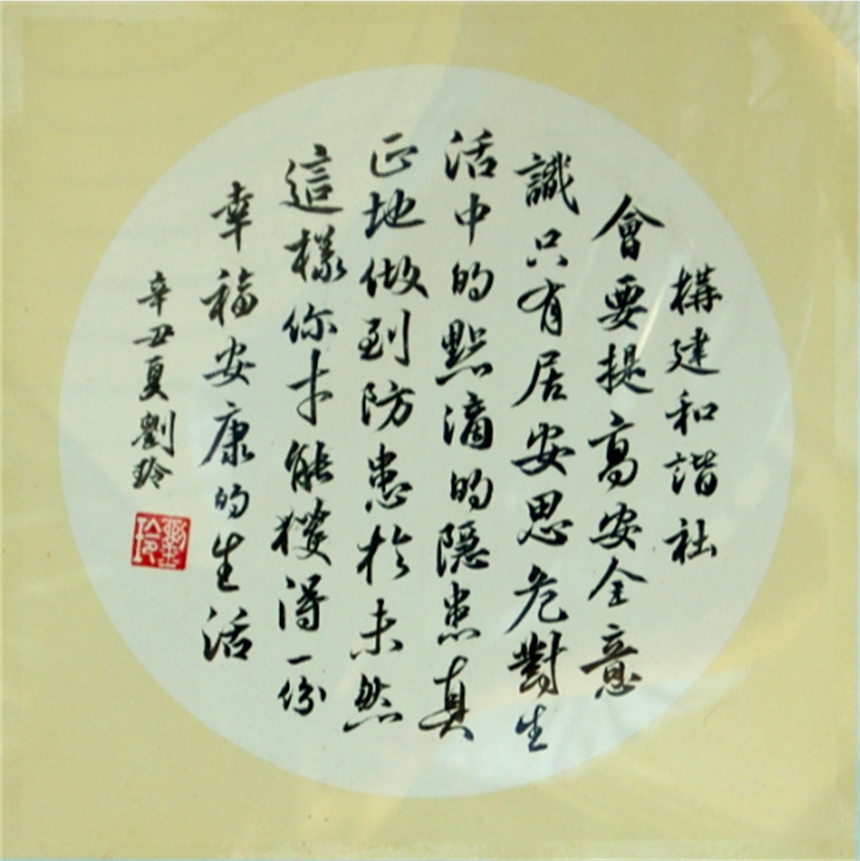 構建和諧社
會要提高安全意
識只有居安思危對生
活中的點滴的隱患真
正地做到防患於未然
這樣你才能獲得一份
幸福安康的生活
辛丑夏劉玲
劉玲